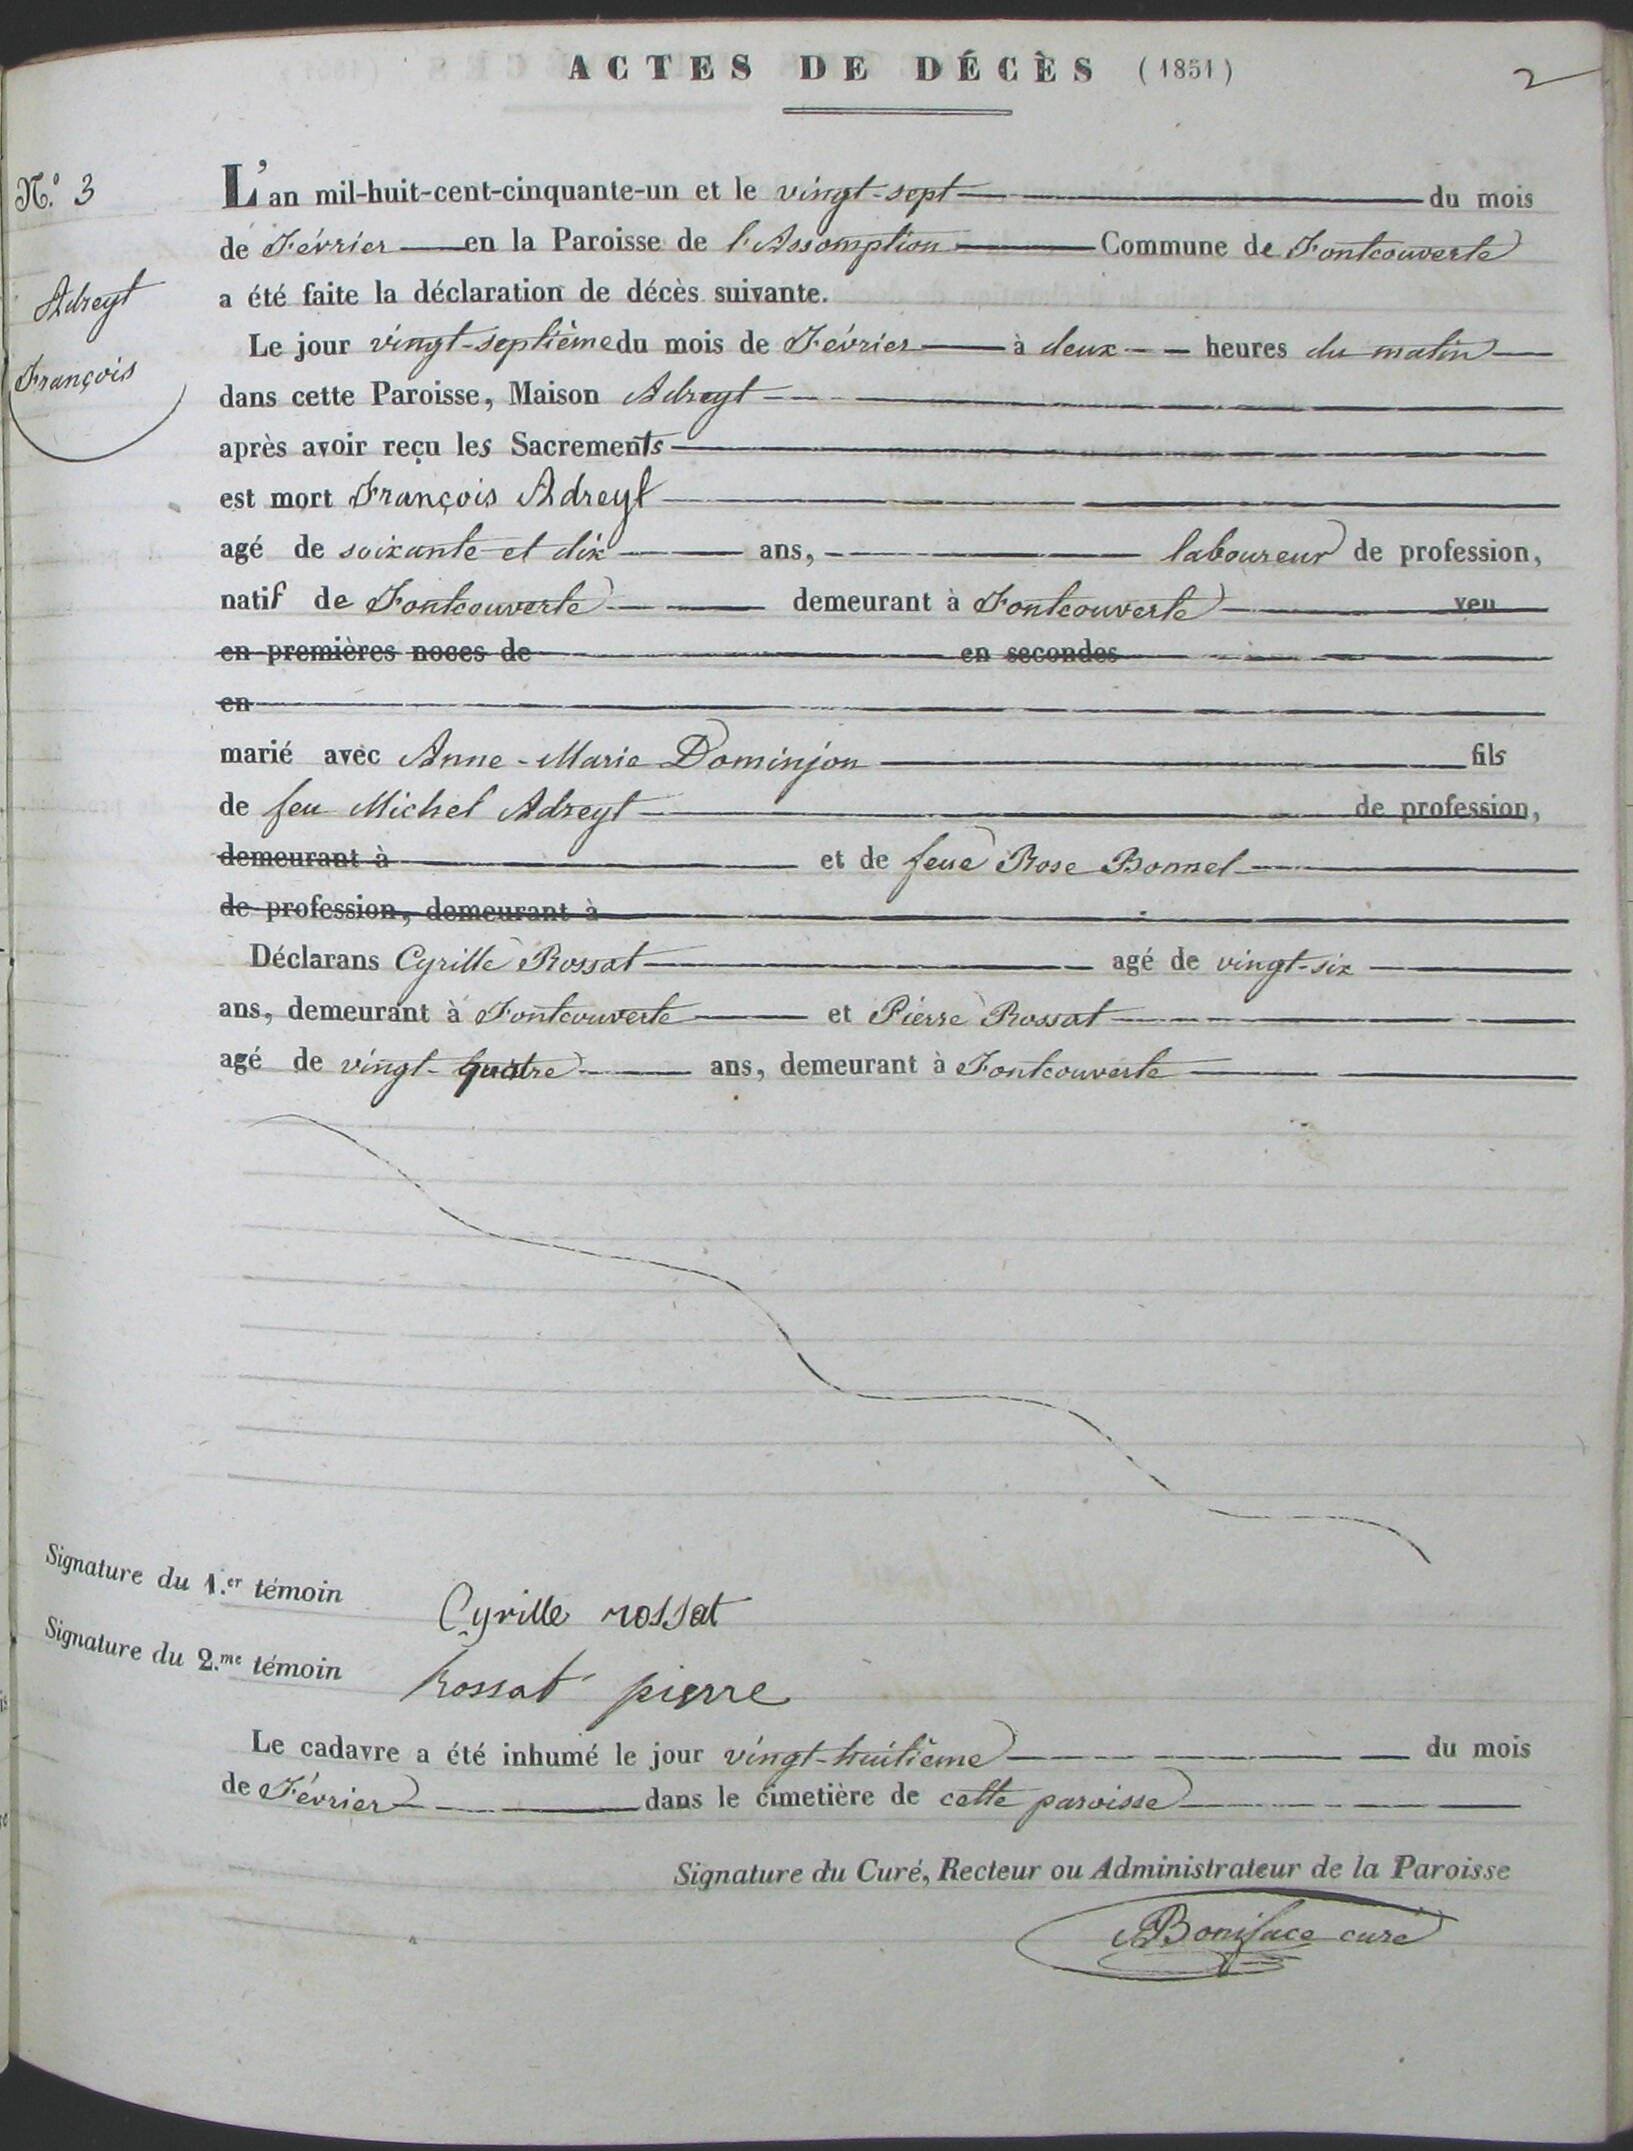 ACTES DE DÉCÈS (1851)
2
N.º 3
Adreyt
François
L'an mil-huit-cent-cinquante-un et le vingt-sept du mois
de Février en la Paroisse de l'Assomption Commune de Fontcouverte
a été faite la déclaration de décès suivante.
Le jour vingt-septième du mois de Février à deux heures du matin
dans cette Paroisse, Maison Adreyt
après avoir reçu les Sacrements
est mort François Adreyt
agé de soixante et dix ans, laboureur de profession,
natif de Fontcouverte demeurant à Fontcouverte veu
en premières noces de en secondes
en
marié avec Anne-Marie Dominjon fils
de feu Michel Adreyt de profession,
demeurant à et de feue Rose Bonnel
de profession, demeurant à
Déclarans Cyrille Rossat agé de vingt-six
ans, demeurant à Fontcouverte et Pierre Rossat
agé de vingt-quatre ans, demeurant à Fontcouverte
Signature du 1.er témoin Cyrille rossat
Signature du 2.me témoin Rossat pierre
Le cadavre a été inhumé le jour vingt-huitième du mois
de Février dans le cimetière de cette paroisse
Signature du Curé, Recteur ou Administrateur de la Paroisse
Boniface curé